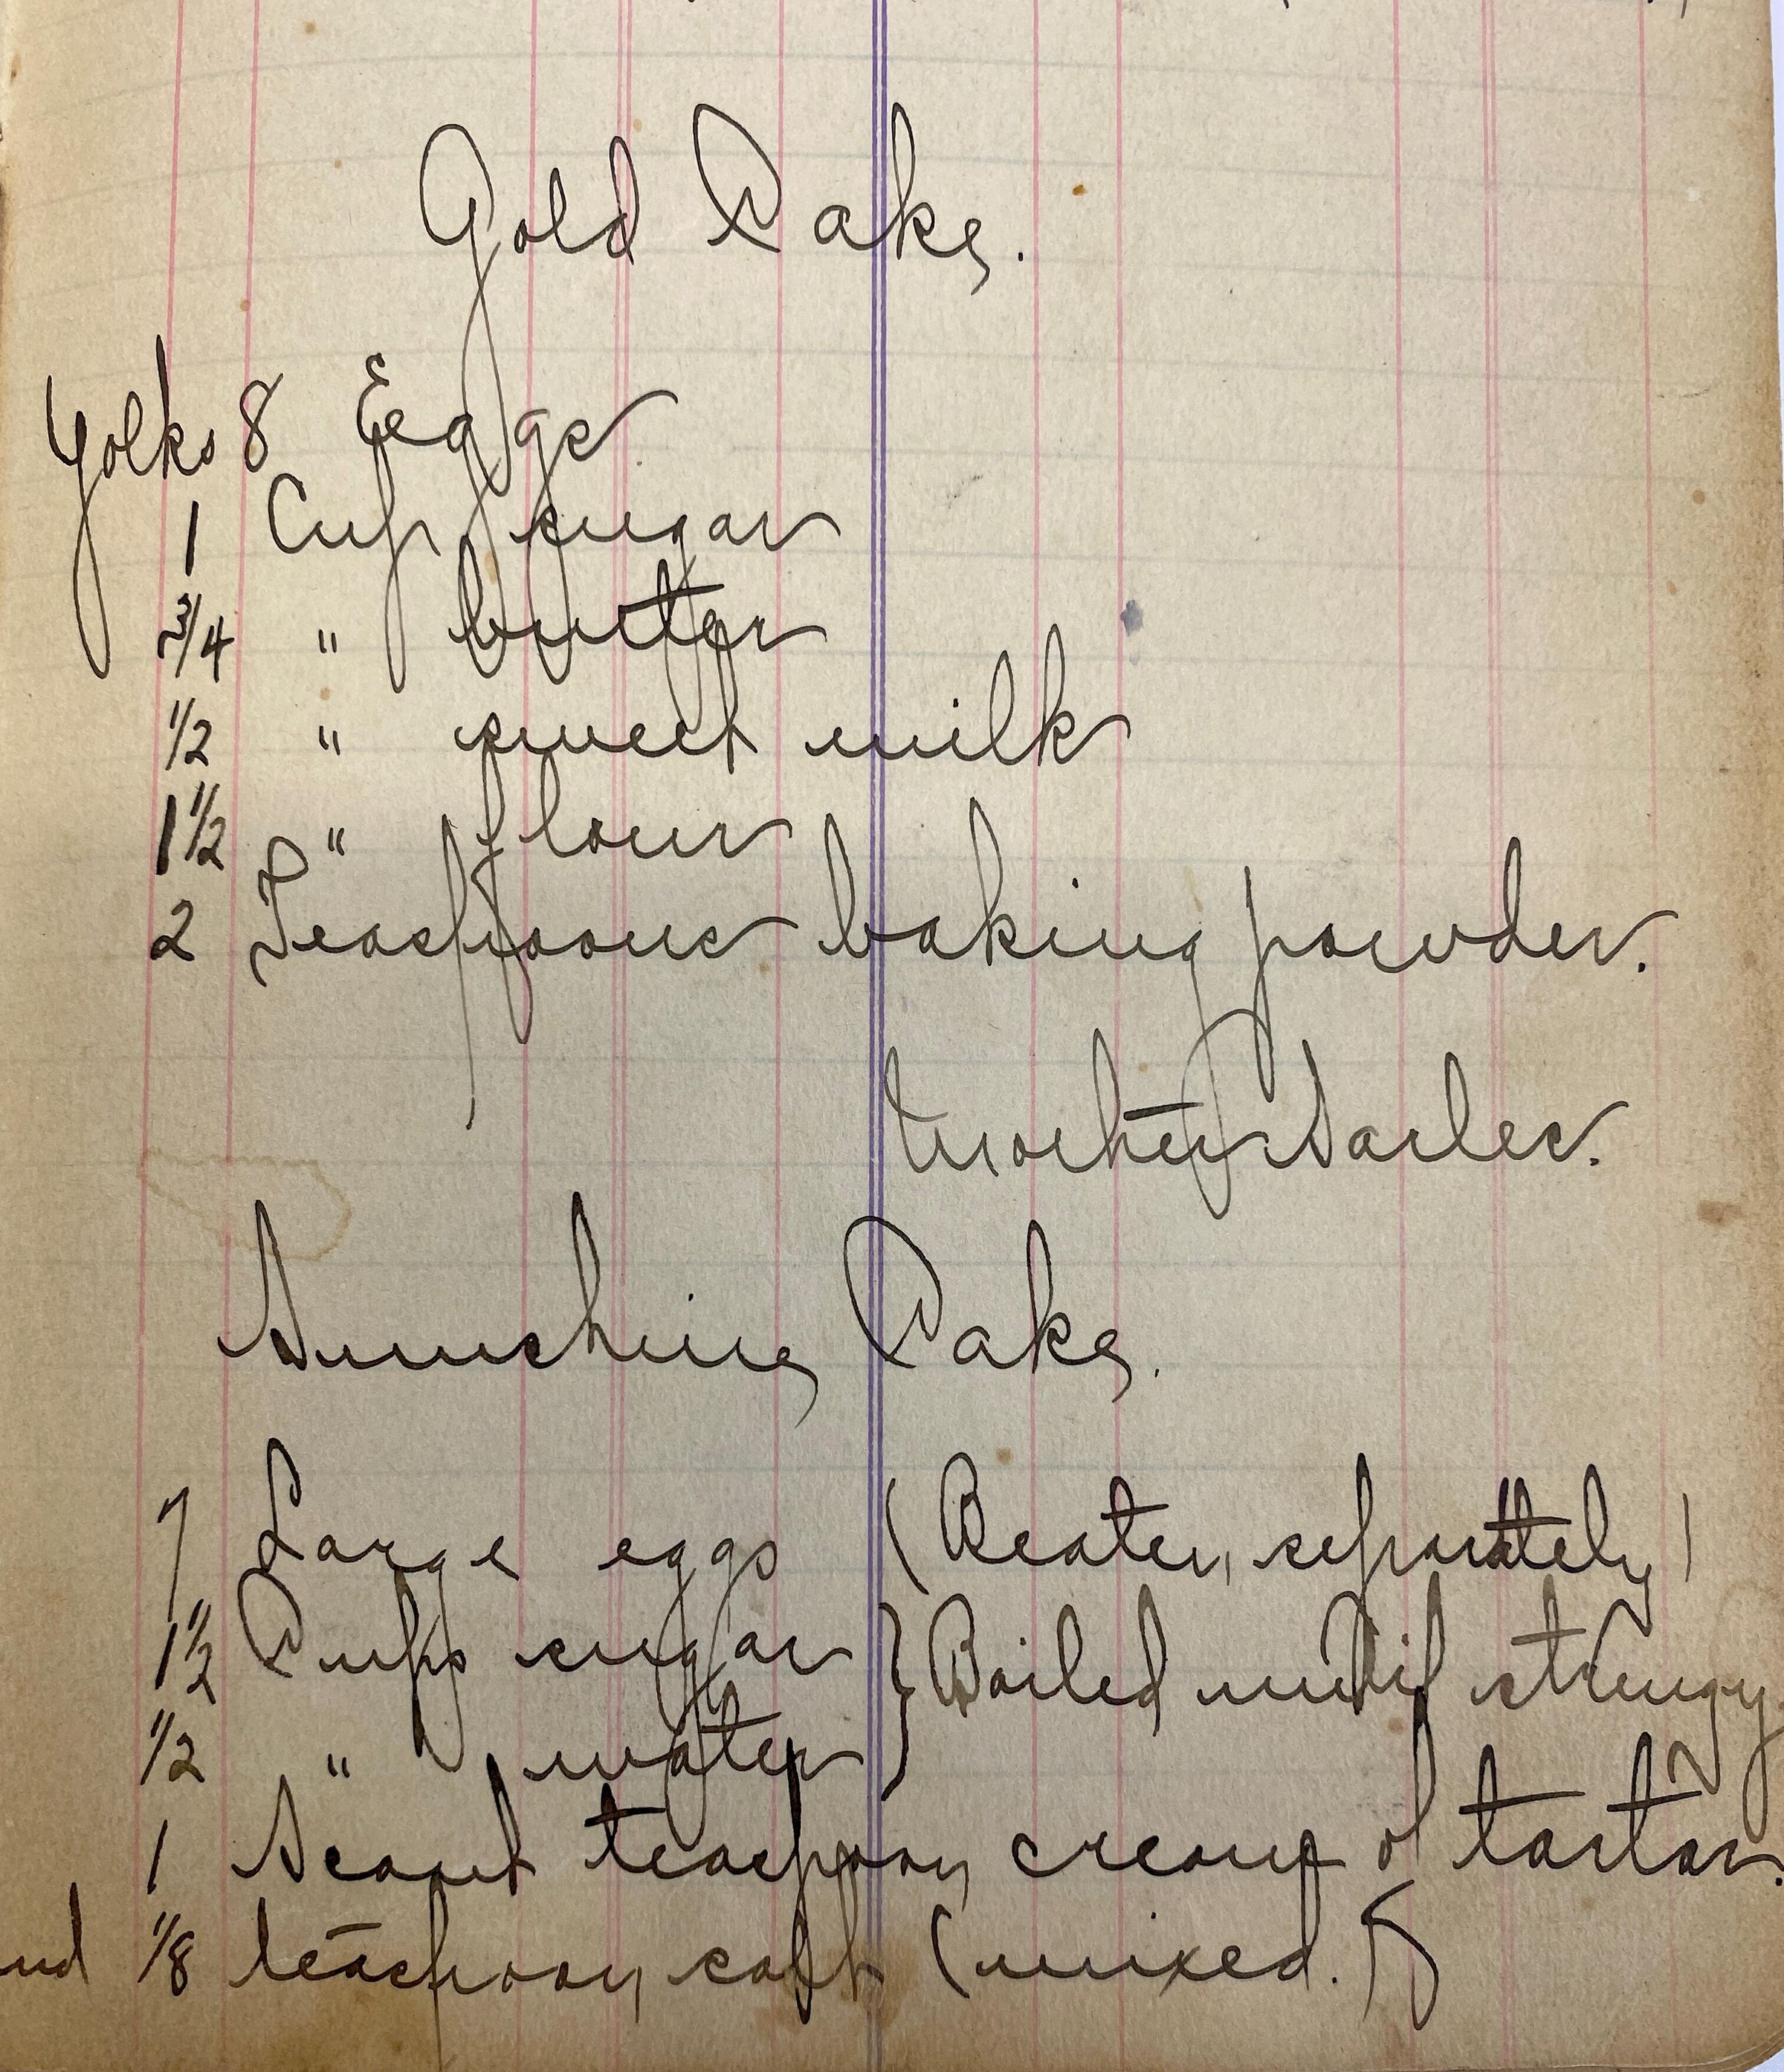 Gold Cake.
Yolks 8 Eggs
1 Cup sugar
3/4 " butter
1/2 " sweet milk
1 1/2 " flour
2 Teaspoons baking powder.
Mother Sarles.
Sunshine Cake.
7 Large eggs (Beaten separately)
1 1/2 Cups sugar } Boiled until stringy
1/2 " water
1 Scant teaspoon cream of tartar.
and 1/8 teaspoon salt (mixed.)